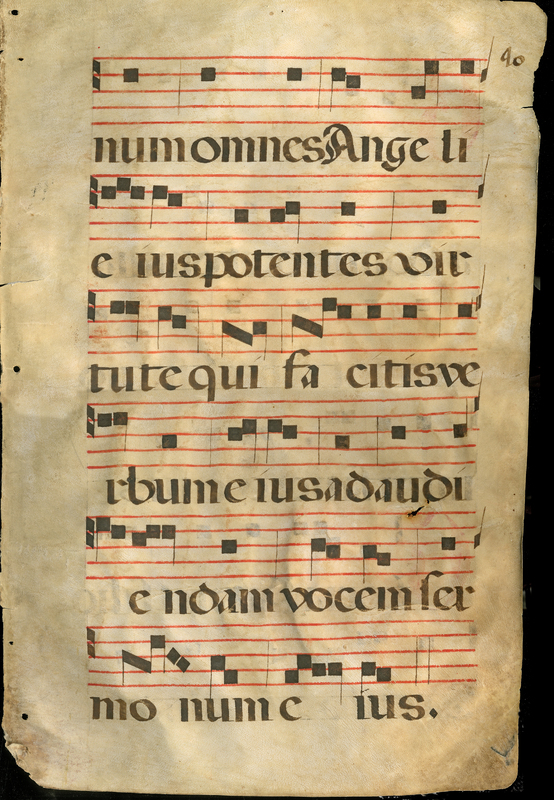 40
num omnes Ange li
e ius potentes vir
tute qui fa citis ve
rbum e ius ad audi
e ndam vocem ser
mo num e ius.